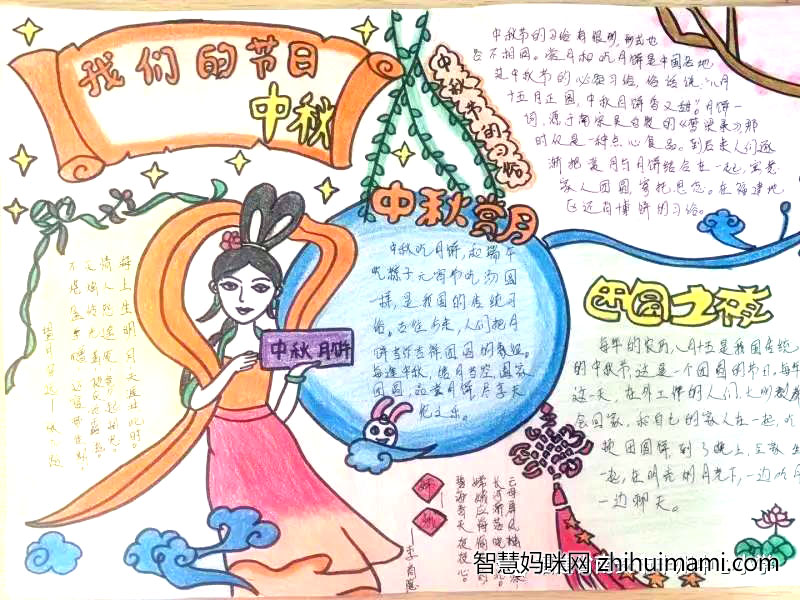 我们的节日
中秋
中秋节的习俗
中秋节的习俗有很多,形式也
各不相同。赏月和吃月饼是中国各地
过中秋节的必备习俗,俗话说:“八月
十五月正圆,中秋月饼香又甜”。月饼一
词,源于南宋吴自牧的《梦梁录》,那
时仅是一种点心食品。到后来人们逐
渐把赏月与月饼结合在一起,寓意
家人团圆,寄托思念。在福建地
区还有博饼的习俗。
中秋赏月
中秋吃月饼,和端午
吃粽子元宵节吃汤圆
一样,是我国的传统习
俗。古往今来,人们把月
饼当作吉祥团圆的象征。
每逢中秋,皓月当空,阖家
团圆,品尝月饼尽享天
伦之乐。
中秋月饼
团圆之夜
每年的农历八月十五是我国传统
的中秋节,这是一个团圆的节日,每年
这一天,在外工作的人们,大的都
会回家,和自己的家人在一起,吃
晚团圆饼,到了晚上,全家坐
一起,在明亮的月光下,一边吃月
一边聊天。
海上生明月,天涯共此时。
情人怨遥夜,竟夕起相思。
灭烛怜光满,披衣觉露滋。
不堪盈手赠,还寝梦佳期。
云母屏风烛影深
长河渐落晓星沉
嫦娥应悔偷灵药
碧海青天夜夜心。
——李商隐
智慧妈咪网 zhihuimami.com